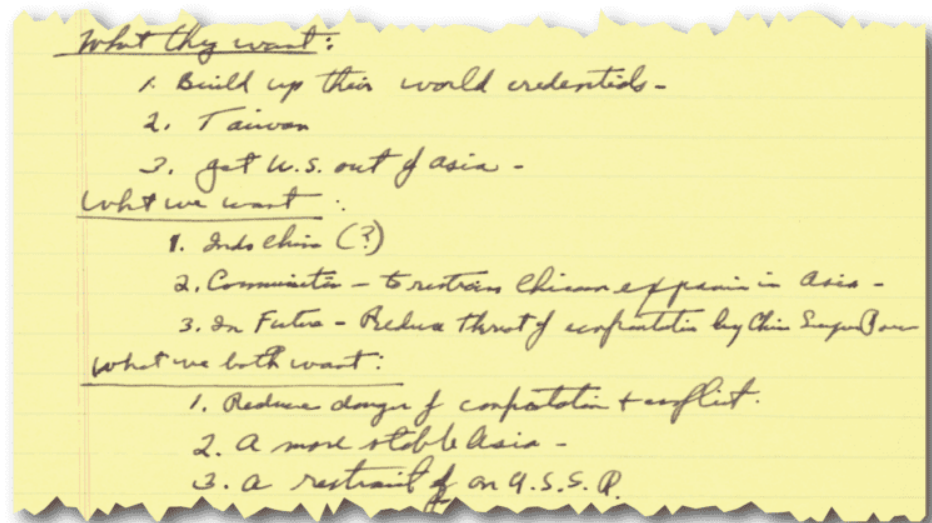 What they want:
1. Build up their world credentials -
2. Taiwan
3. get U.S. out of Asia -
What we want:
1. Indo China (?)
2. Communists - to restrain Chicom expansion in Asia -
3. In Future - Reduce threat of confrontation by China Super Power
What we both want:
1. Reduce danger of confrontation + conflict.
2. A more stable Asia -
3. A restraint of on U.S.S.R.